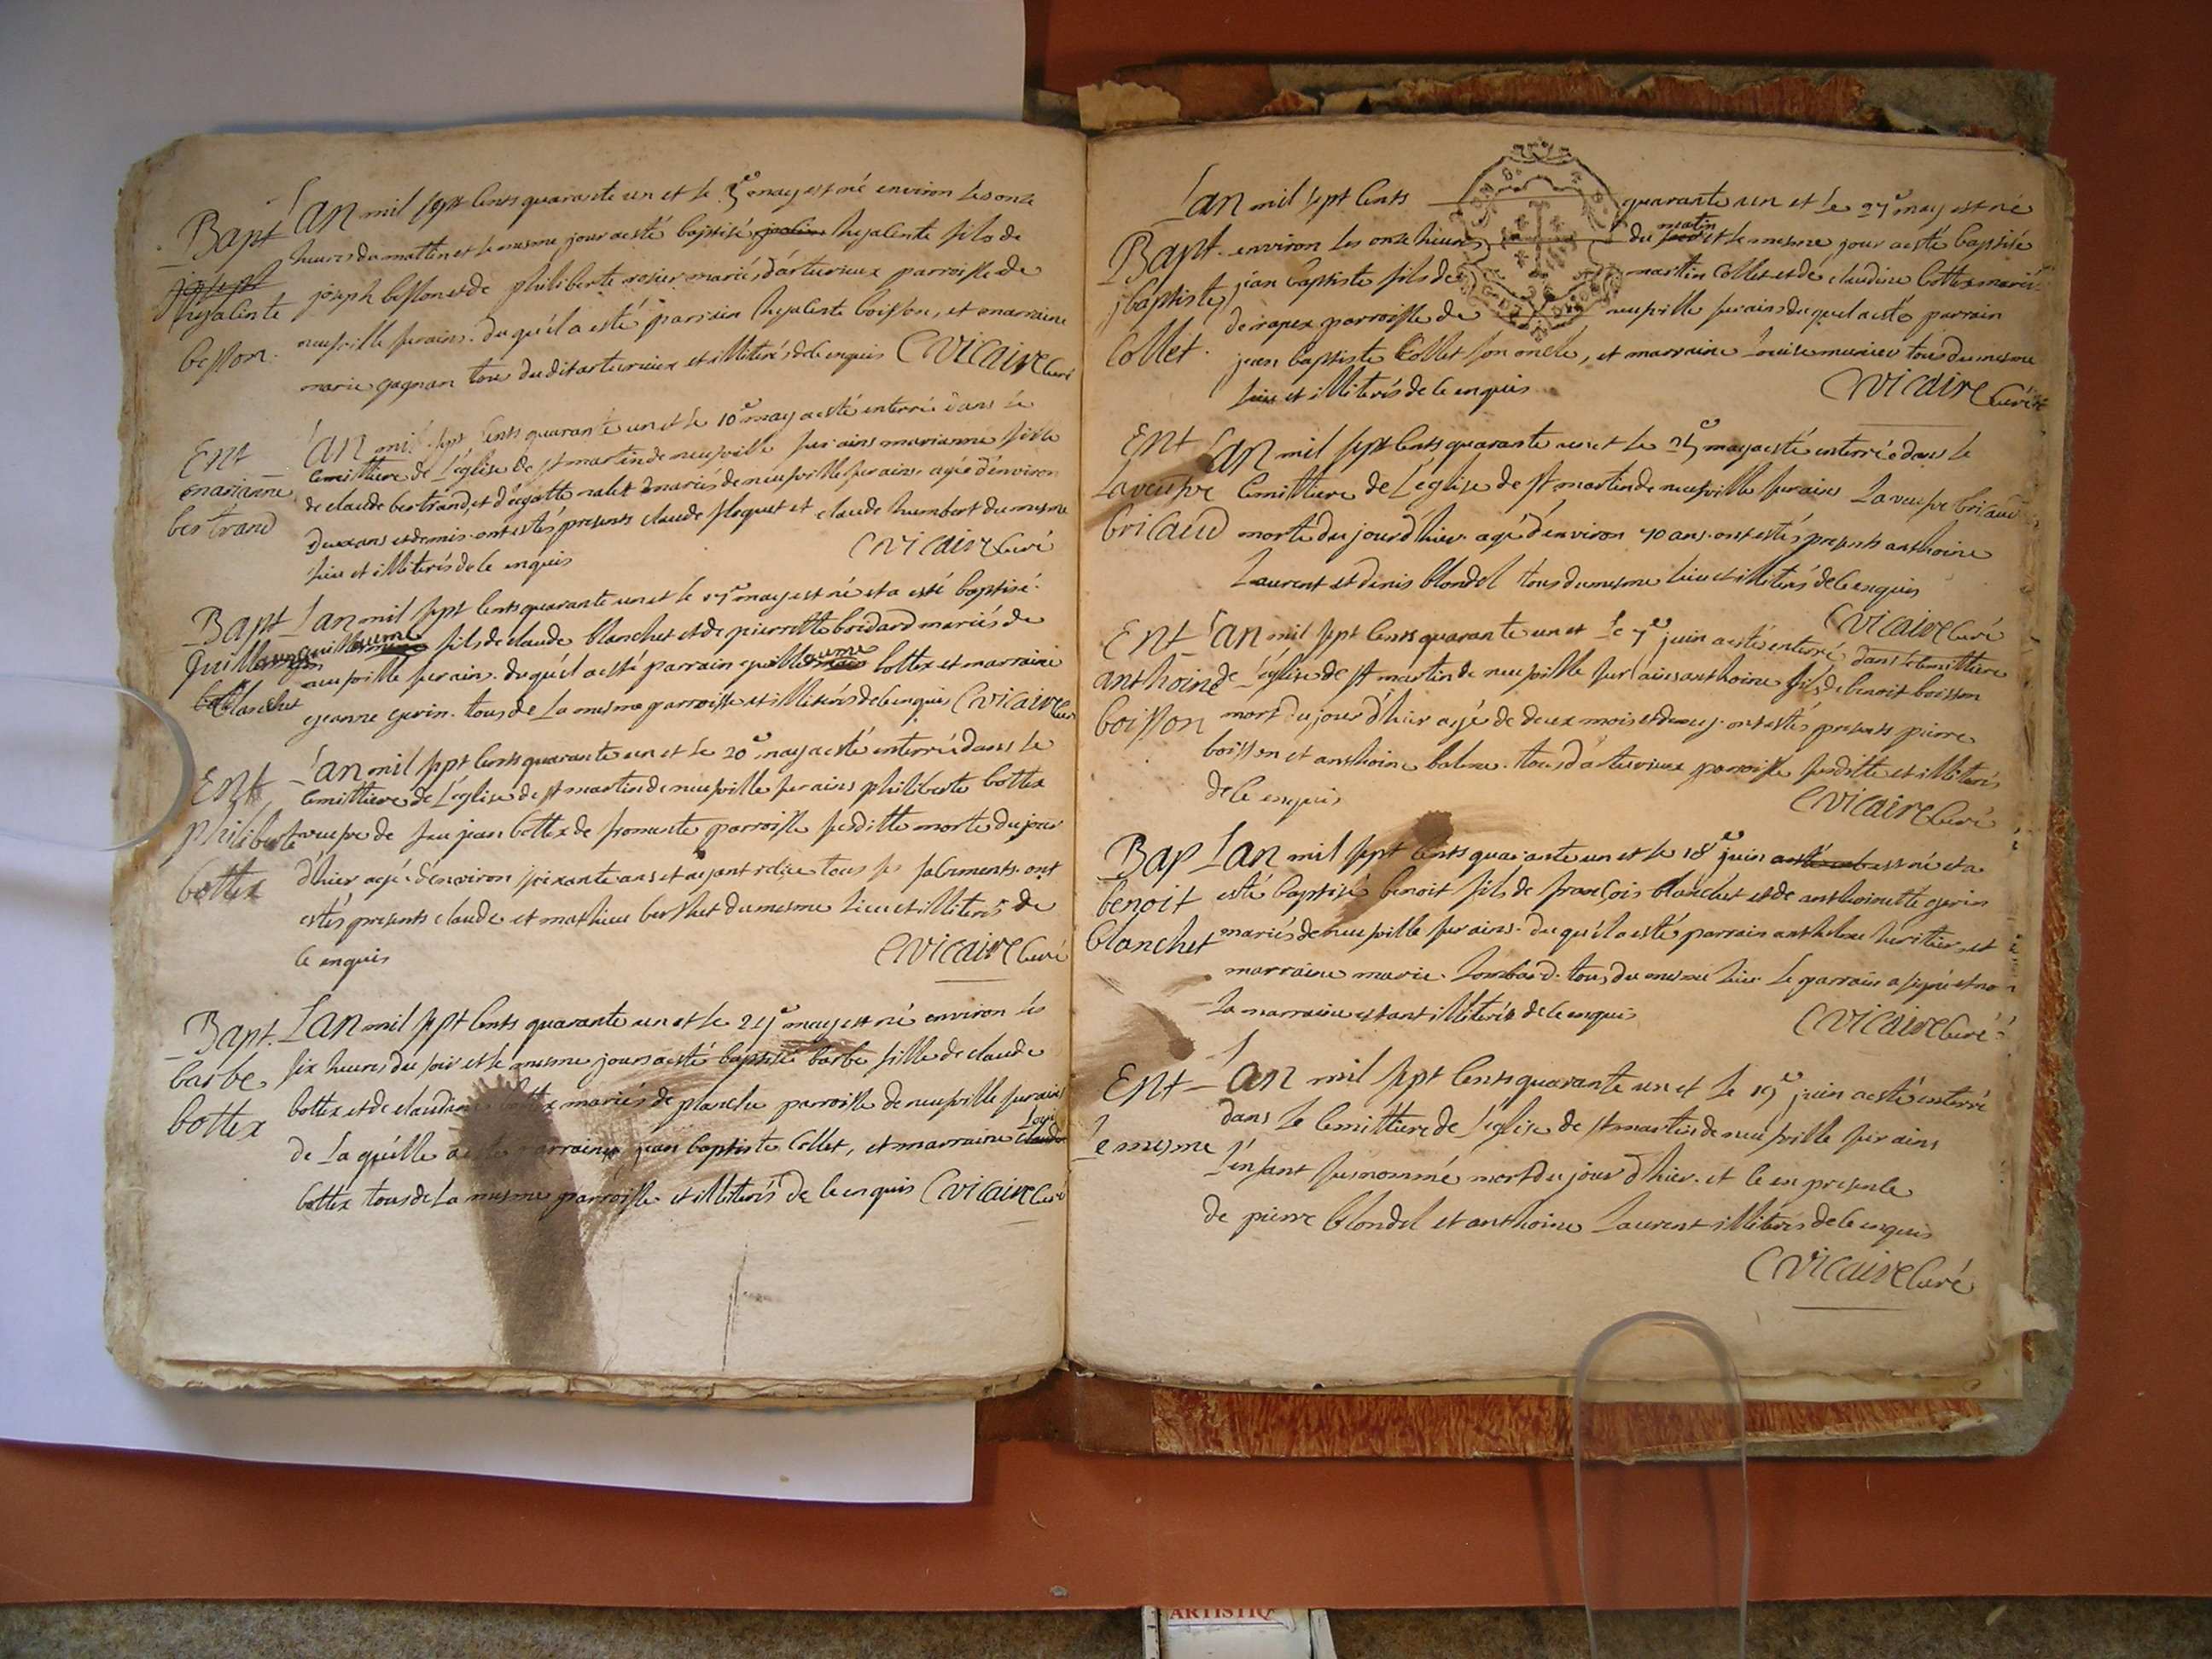 Bapt
joseph
hyalinte
besson.
Lan mil sept cents quarante un et le 5e may est né environ les onze
heures du mattin et le mesme jour a esté baptisé hyalinte fils de
joseph besson et de philiberte rosier mariés d'arturieux parroisse de
neufville sur ains. duquel a esté parrain hyalinte boisson, et marraine
marie gagnan tous dudit arturieux et illiterés de ce enquis C Vicaire Curé
Ent
marianne
bertrand
Lan mil sept cents quarante un et le 10e may a esté enterré dans le
cemittiere de l'église de st martin de neufville sur ains marianne fille
de claude bertrand, et d'agatte nalet mariés de neufville sur ains. agée d'environ
deux ans et demis. ont estés presents claude floquet et claude humbert du mesme
lieu et illiterés de ce enquis
C Vicaire Curé
Bapt
Guillaume
blanchet
Lan mil sept cents quarante un et le 17e may est né et a esté baptisé
guillaume fils de claude blanchet et de pierrette bordard mariés de
neufville sur ain. duquel a esté parrain guillaume bottex et marraine
jeanne gerin. tous de la mesme parroisse et illiterés de ce enquis C Vicaire Curé
Ent
philiberte
bottex
Lan mil sept cents quarante un et le 20e may a esté enterrée dans le
cemittiere de l'église de st martin de neufville sur ains philiberte bottex
veufve de feu jean bottex de fromente parroisse susditte morte du jour
d'hier agée d'environ soixante ans et ayant reçue tous ses sacrements. ont
estés presents claude et mathieu berthet du mesme lieu et illiterés de
ce enquis
C Vicaire Curé
Bapt.
barbe
bottex
Lan mil sept cents quarante un et le 24e may est né environ les
six heures du soir et le mesme jours a esté baptisé barbe fille de claude
bottex et de claudine bottex mariés de planche parroisse de neufville sur ains
de laquelle a esté parrain jean baptiste Collet, et marraine
bottex tous de la mesme parroisse et illiterés de ce enquis C Vicaire Curé
Bapt.
jbaptiste
Collet.
Lan mil sept cents quarante un et le 27e may est né
environ les onze heures du matin et le mesme jour a esté baptisé
jean baptiste fils de martin Collet et de claudine bottex mariés
de rapex parroisse de neufville sur ains duquel a esté parrain
jean baptiste Collet son oncle, et marraine Louise munier tous du mesme
lieu et illiterés de ce enquis
C Vicaire Curé
Ent
La veufve
bricaud
Lan mil sept cents quarante un et le 25e may a esté enterrée dans le
cemittiere de L'eglise de st martin de neufville sur ains La veufve bricaud
morte du jour d'hier. agé d'environ 70 ans. ont estés presents anthoine
Laurent et denis blondel tous du mesme lieu et illiterés de ce enquis
C Vicaire Curé
Ent
anthoine
boisson
Lan mil sept cents quarante un et le 7e juin a esté enterré dans le cemittiere
de l'église de st martin de neufville sur ains anthoine fils de benoit boisson
mort du jour d'hier agé de deux mois et demy. ont estés presents pierre
boisson et anthoine balme. tous d'arturieux parroisse susditte et illiterés
de ce enquis
C Vicaire Curé
Bap
benoit
blanchet
Lan mil sept cents quarante un et le 18e juin est né et a
esté baptisé benoit fils de françois blanchet et de anthoinette gerin
mariés de neufville sur ains. duquel a esté parrain anthelme heritier, et
marraine marie Lombard. tous du mesme lieu. Le parrain a signé et non
la marraine estant illiterés de ce enquis
C Vicaire Curé
Ent
Le mesme
Lan mil sept cents quarante un et le 19e juin a esté enterré
dans Le Cemittiere de l'église de st martin de neufville sur ains
l'enfant susnommé mort du jour d'hier. et ce en presence
de pierre blondel et anthoine Laurent illiterés de ce enquis
C Vicaire Curé
ARTISTIQ